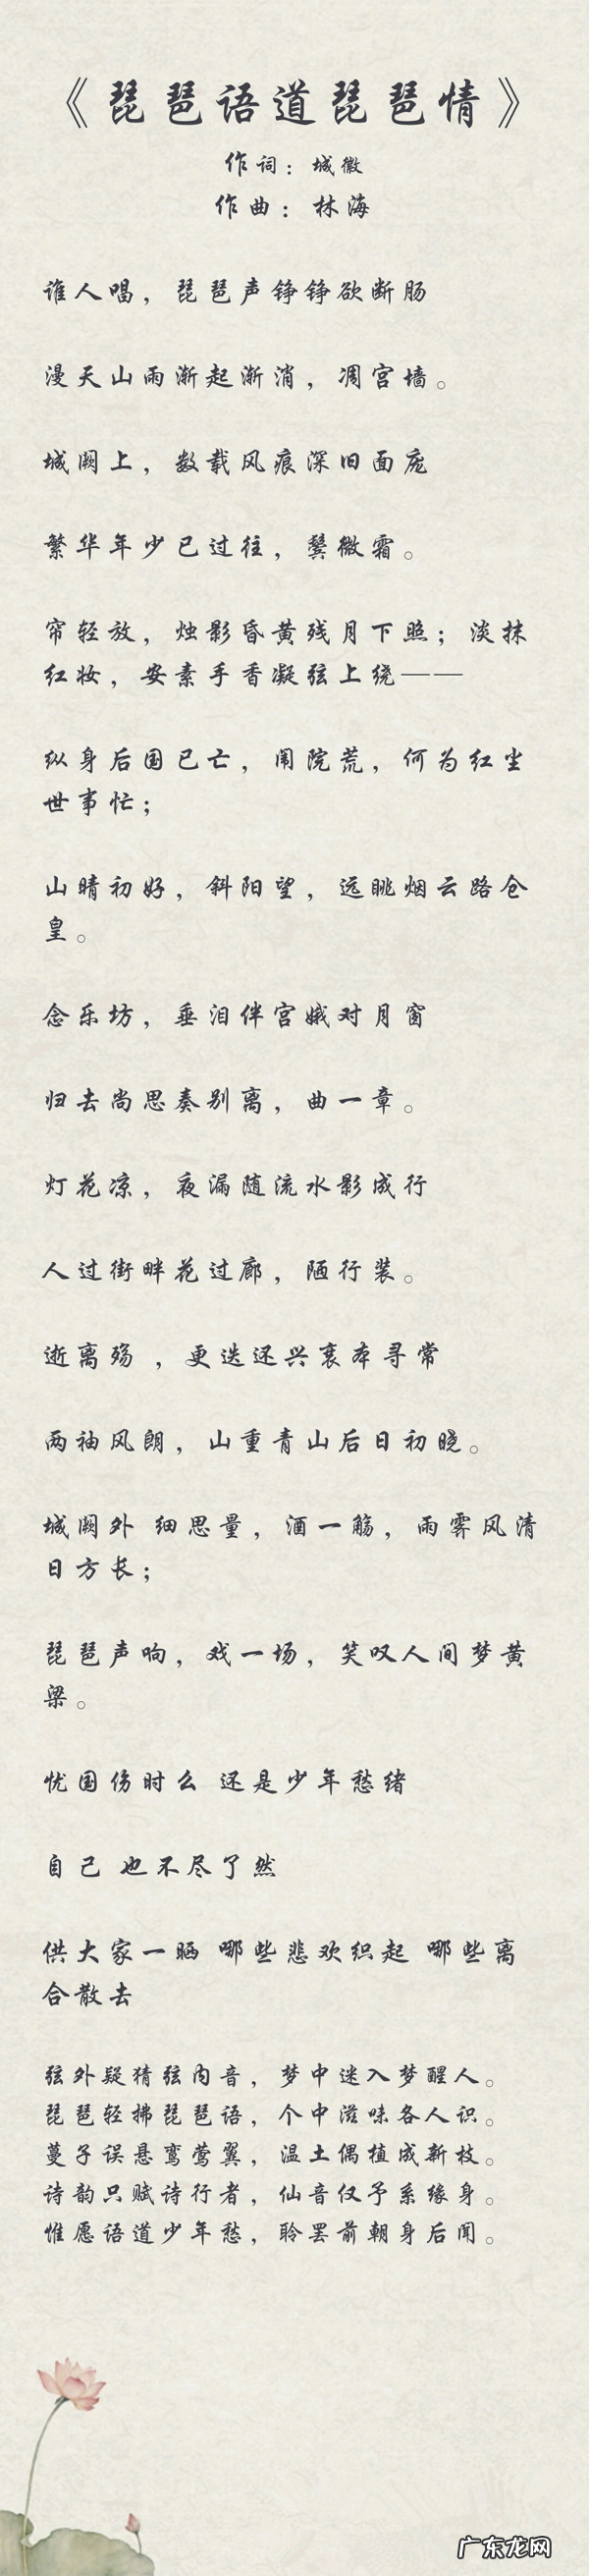 《琵琶语道琵琶情》
作词：城徽
作曲：林海
谁人唱，琵琶声铮铮欲断肠
漫天山雨渐起渐消，凋宫墙。
城阙上，数载风痕深旧面庞
繁华年少已过往，鬓微霜。
帘轻放，烛影昏黄残月下照；淡抹
红妆，安素手香凝弦上绕——
纵身后国已亡，闱院荒，何为红尘
世事忙；
山晴初好，斜阳望，远眺烟云路仓
皇。
念乐坊，垂泪伴宫娥对月窗
归去尚思奏别离，曲一章。
灯花凉，夜漏随流水影成行
人过街畔花过廊，陋行装。
逝离殇 ，更迭还兴衰本寻常
两袖风朗，山重青山后日初晓。
城阙外 细思量，酒一觞，雨霁风清
日方长；
琵琶声响，戏一场，笑叹人间梦黄
梁。
忧国伤时么 还是少年愁绪
自己 也不尽了然
供大家一晒 哪些悲欢织起 哪些离
合散去
弦外疑猜弦内音，梦中迷入梦醒人。
琵琶轻拂琵琶语，个中滋味各人识。
蔓子误悬鸾莺翼，温土偶植成新枝。
诗韵只赋诗行者，仙音仅予系缘身。
惟愿语道少年愁，聆罢前朝身后闻。
广东龙网